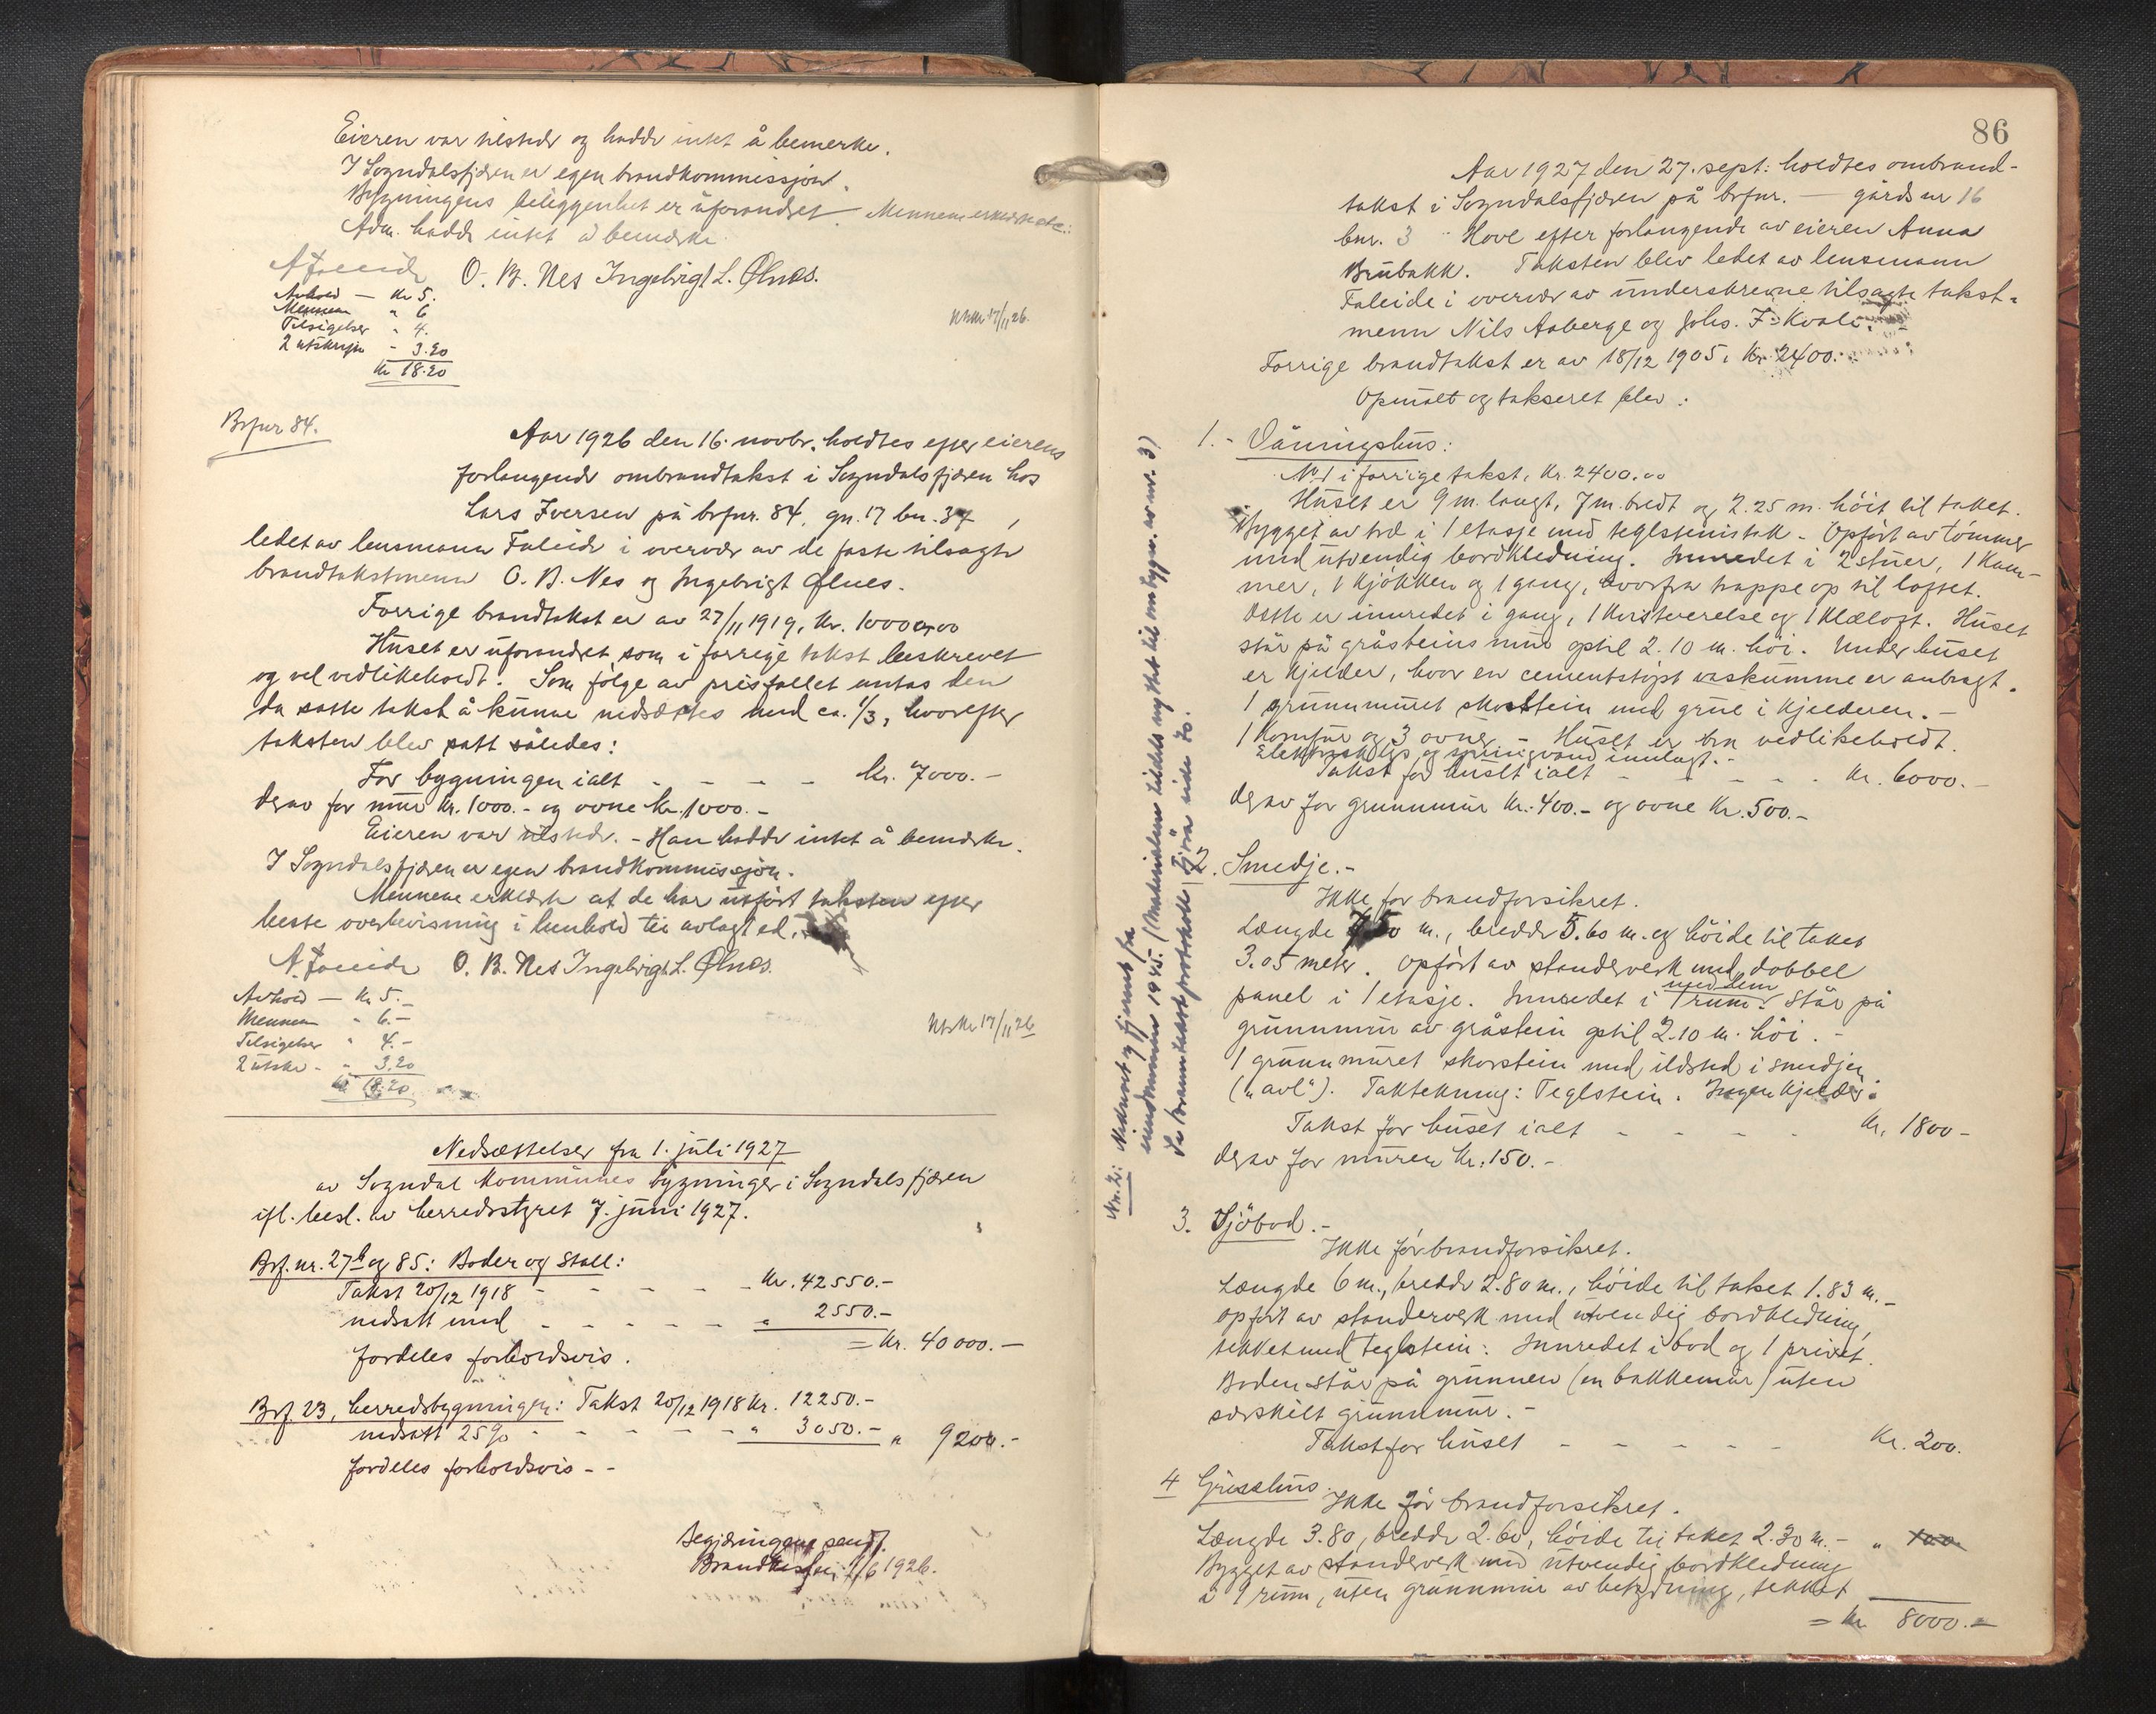 Eieren var tilstede og hadde intet å bemerke.
I Sogndalsfjæren er egen brandkommissjon.
Bygningens beliggenhet er uforandret – Mennene erklærte etc.:
Adm. hadde intet å bemerke.
A Faleide O. B. Nes Ingebrigt L. Ølnes.
Avhold — Kr 5.
Mennene " 6
Tilsigelser " 4.
2 utskrifter - 3.20
Kr 18.20
Utskr 17/11 26.
Brfnr 84.
Aar 1926 den 16. novbr. holdtes efter eierens
forlangende ombrandtakst i Sogndalsfjæren hos
Lars Iversen på brfnr. 84, gn. 17 bn. 37,
ledet av lensmann Faleide i overvær av de faste tilsagte
brandtakstmenn O. B. Nes og Ingebrigt Ølnes.
Forrige brandtakst er av 27/11 1919, kr. 10000,00
Huset er uforandret som i forrige takst beskrevet
og vel vedlikeholdt. Som følge av prisfallet antas den
da satte takst å kunne nedsættes med ca. 1/3, hvorefter
taksten blev satt således:
For bygningen ialt - - - - kr. 7000.-
derav for mur kr. 1000.- og ovne kr. 1000.-
Eieren var tilstede. - Han hadde intet å bemerke.
I Sogndalsfjæren er egen brandkommissjon.
Mennene erklærte at de har utført taksten efter
beste overbevisning i henhold til avlagt ed.
A. Faleide O. B. Nes Ingebrigt L. Ølnes.
Avhold — Kr 5.-
Mennene " 6.-
Tilsigelser " 4.-
2 utskr - " 3.20
kr 18.20
Utskr 17/11 26
Nedsættelser fra 1. juli 1927
av Sogndal kommunes bygninger i Sogndalsfjæren
ifl. besl. av herredsstyret 7. juni 1927.
Brf. nr. 27b og 85: Boder og Stall:
Takst 20/12 1918 - - - - - kr. 42550.-
nedsatt med - - - - - " 2550.-
= kr. 40000.-
fordeles forholdsvis.
Brf. 23, herredsbygningen: Takst 20/12 1918 kr. 12250.-
nedsatt 25% - - - - - " 3050.- " 9200.-
fordeles forholdsvis - -
Begjæringene sendt
1/6 1926.
86
Aar 1927 den 27. sept: holdtes ombrand-
takst i Sogndalsfjæren på brfnr. — gårdsnr 16
bnr. 3 Hove efter forlangende av eieren Anna
Brubakk. Taksten blev ledet av lensmann
Faleide i overvær av underskrevne tilsagte takst-
menn Nils Aaberge og Johs. F. Kvale.
Forrige brandtakst er av 18/12 1905, kr. 2400.
Opmålt og takseret blev:
1.- Våningshus:
No 1 i forrige takst, kr. 2400.00
Huset er 9 m. langt, 7 m. bredt og 2.25 m. höit til taket.
Bygget av træ i 1 etasje med teglsteinstak - Opfört av tömmer
med utvendig bordklædning. Innredet i 2 stuer, 1 kam-
mer, 1 kjökken og 1 gang, hvorfra trappe op til loftet.
Dette er innredet i gang, 1 kvistværelse og 1 klæloft. Huset
står på gråsteins mur optil 2.10 m. höi. Under huset
er kjelder, hvor en cementstöpt vaskumme er anbragt.
1 grunnmuret skorstein med grue i kjelderen.-
1 komfur og 3 ovner - Huset er bra vedlikeholdt.
Elektrisk lys og springvand innlagt.-
Takst for huset ialt - - - - - kr. 6000.-
derav for grunnmur kr. 400.- og ovne kr. 500.-
2. Smedje.-
Ikke för brandforsikret.
Længde m., bredde 5.60 m. og höide til taket
3.05 meter. Opfört av standerverk med dobbel
panel i 1 etasje. Innredet i 1 rum. Står på
grunnmur av gråstein optil 2.10 m. höi.-
1 grunnmuret skorstein med ildsted i smedjen
("avl"). Taktekning: Teglstein. Ingen kjelder.
Takst for huset ialt - - - - kr. 1800-
derav for muren kr. 150.-
3. Sjöbod.-
Ikke för brandforsikret.
Længde 6 m., bredde 2.80 m., höide til taket 1.83 m.-
opfört av standerverk med utvendig bordklædning,
tekket med teglstein. Innredet i bod og 1 privet.
Boden står på grunnen (en bakkemur) uten
særskilt grunnmur.-
Takst for huset - - - - - kr. 200.
4 Grisehus.
Ikke för brandforsikret.
Længde 3.80, bredde 2.60, höide til taket 2.30 m.- "
Bygget av standerverk med utvendig bordklædning
i 1 rum, uten grunnmur av betydning, tekket
= kr 8000.-
Nr. 2: Nedrevet og fjernet fra
eiendommen 1945. (Materialene tildels nyttet til ombygn. av nr. 3)
Se branntakstprotokoll